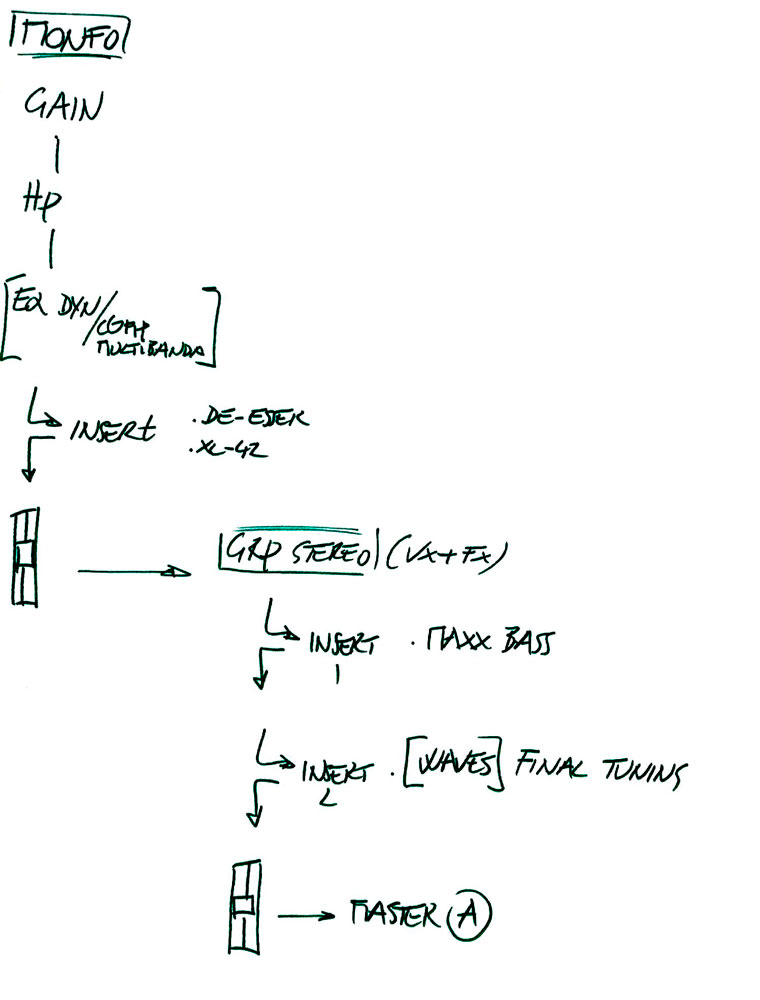 MONFO
GAIN
HP
[EQ DYN/COMP
MULTIBANDA]
INSERT .DE-ESSER
.XL-42
GRP STEREO (VX+FX)
INSERT . MAXX BASS
1
INSERT . [WAVES] FINAL TUNING
2
MASTER A